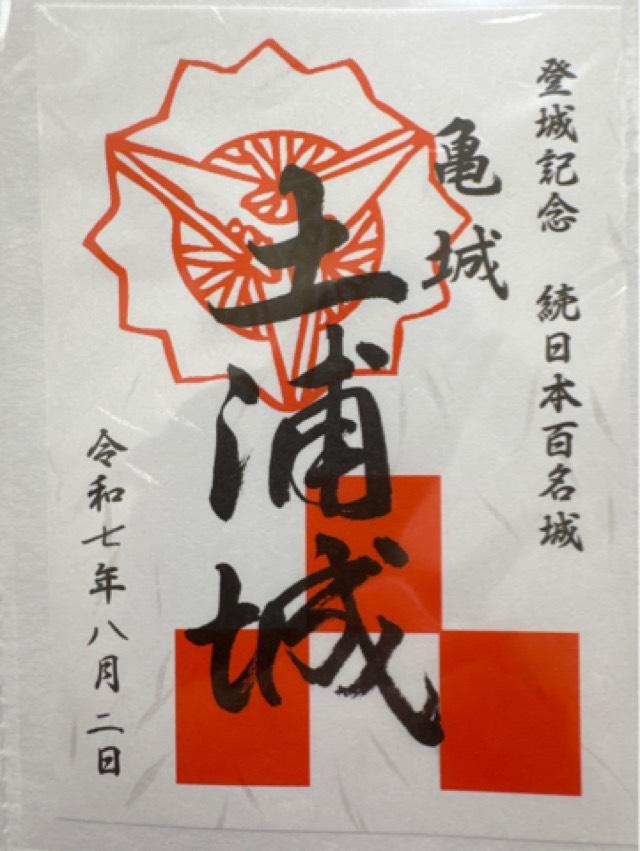 登城記念 続日本百名城
亀城
土浦城
令和七年八月二日